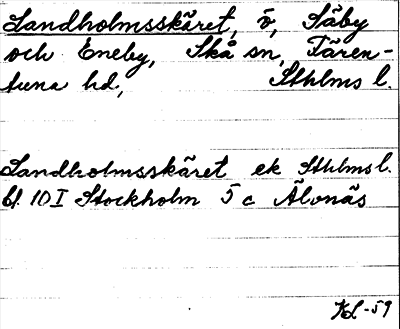 Sandholmsskäret, ö, Säby
och Eneby, Skå sn, Fären-
tuna hd, Sthlms l.
Sandholmsskäret ek Sthlms l.
bl. 10 I Stockholm 5 c Älvnäs
KL-59